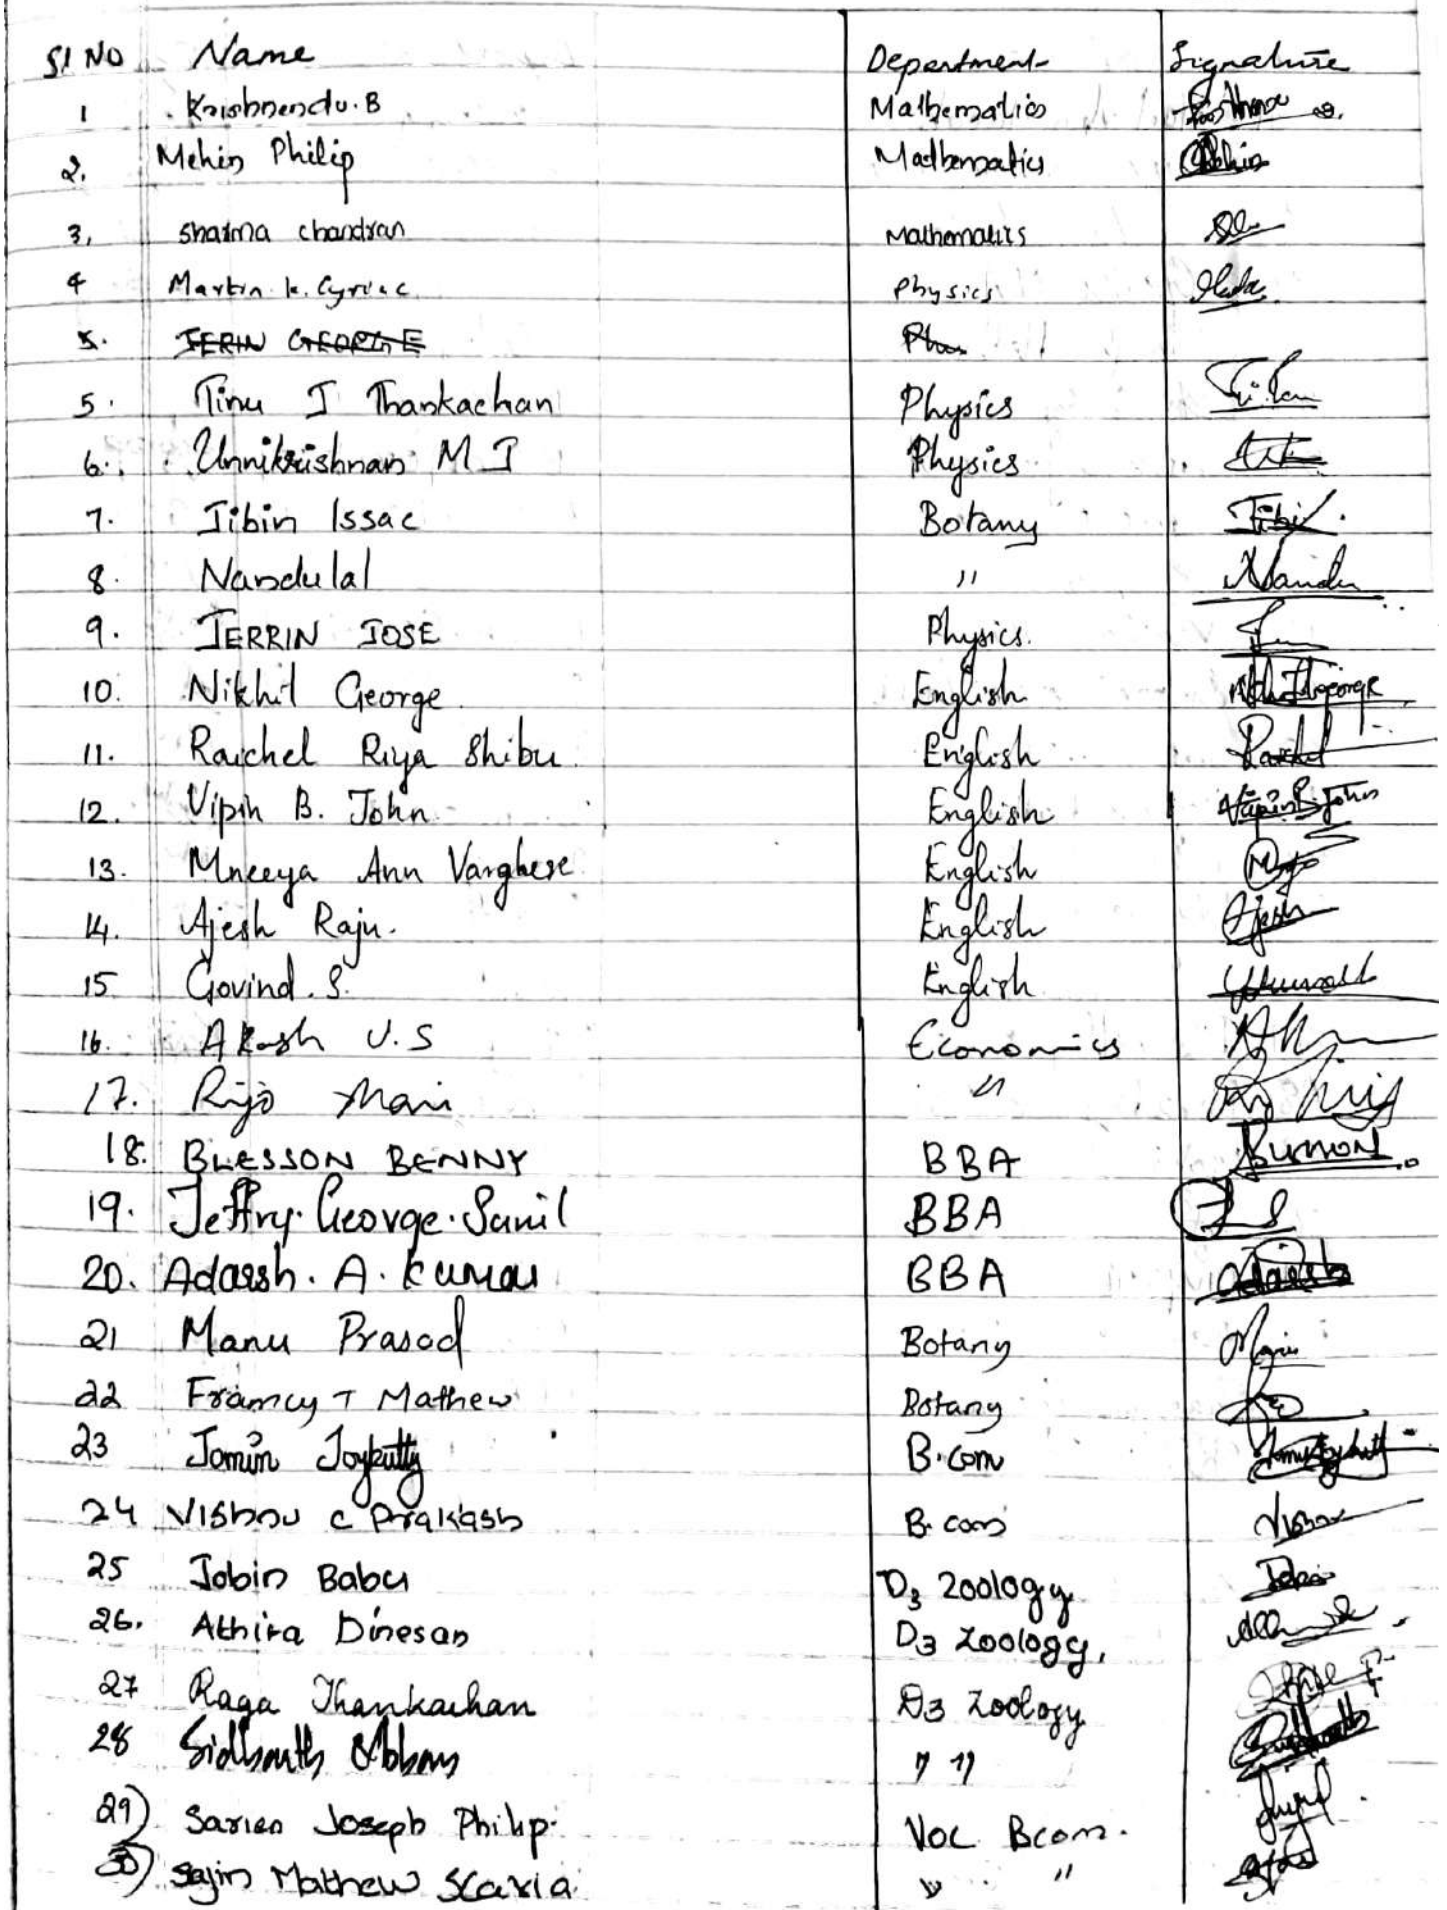 Sl NO Name Department Signature
1 Krishnendu. B Mathematics
2. Mehin Philip Mathematics
3, Sharma chandran Mathematics
4 Martin K. Cyriac Physics
5. JERIN GEORGE Phy
5. Tinu J Thankachan Physics
6. Unnikrishnan M J Physics
7. Jibin Issac Botany Jibi
8. Nandulal " Nandu
9. JERRIN JOSE Physics.
10. Nikhil George English
11. Raichel Riya Shibu English Raichel
12. Vipin B. John English Vipin B John
13. Mneeya Ann Varghese English
14. Ajesh Raju. English Ajesh
15 Govind. S. English
16. Akash V.S Economics
17. Rijo Mani "
18. BLESSON BENNY BBA
19. Jeffry. George. Sunil BBA
20. Adarsh. A. Kumar BBA Adarsh
21 Manu Prasad Botany
22 Framcy T Mathew Botany
23 Jomin Joykutty B.com
24 Vishnu C Prakash B.com Vishnu
25 Jobin Babu D3 Zoology
26. Athira Dinesan D3 Zoology,
27 Raga Thankachan D3 Zoology
28 Sidharth " "
29) Sarien Joseph Philip. Voc Bcom.
30) Sajin Mathew Scaria " "